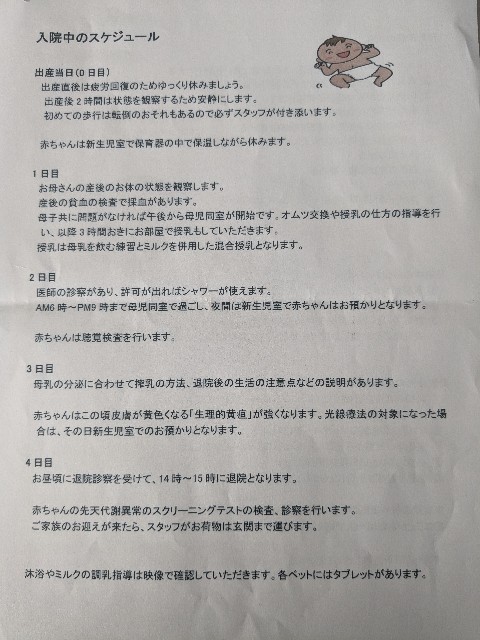 入院中のスケジュール
出産当日(0日目)
出産直後は疲労回復のためゆっくり休みましょう。
出産後2時間は状態を観察するため安静にします。
初めての歩行は転倒のおそれもあるので必ずスタッフが付き添います。
赤ちゃんは新生児室で保育器の中で保温しながら休みます。
1日目
お母さんの産後のお体の状態を観察します。
産後の貧血の検査で採血があります。
母子共に問題がなければ午後から母児同室が開始です。オムツ交換や授乳の仕方の指導を行
い、以降3時間おきにお部屋で授乳もしていただきます。
授乳は母乳を飲む練習とミルクを併用した混合授乳となります。
2日目
医師の診察があり、許可が出ればシャワーが使えます。
AM6時～PM9時まで母児同室で過ごし、夜間は新生児室で赤ちゃんはお預かりとなります。
赤ちゃんは聴覚検査を行います。
3日目
母乳の分泌に合わせて搾乳の方法、退院後の生活の注意点などの説明があります。
赤ちゃんはこの頃皮膚が黄色くなる「生理的黄疸」が強くなります。光線療法の対象になった場
合は、その日新生児室でのお預かりとなります。
4日目
お昼頃に退院診察を受けて、14時～15時に退院となります。
赤ちゃんの先天代謝異常のスクリーニングテストの検査、診察を行います。
ご家族のお迎えが来たら、スタッフがお荷物は玄関まで運びます。
沐浴やミルクの調乳指導は映像で確認していただきます。各ベットにはタブレットがあります。